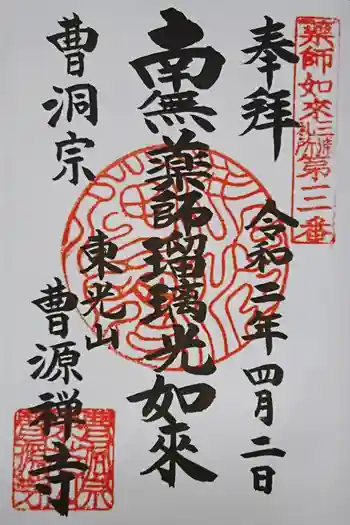 薬師如來三十三ヶ所第三番
奉拝
令和二年四月二日
南無薬師瑠璃光如來
東光山
曹洞宗
曹源禅寺